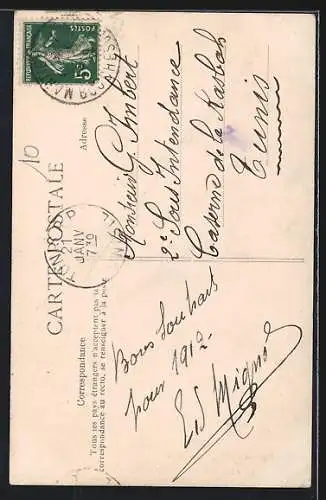 10
POSTES
5c
CARTE POSTALE
Correspondance
Tous les pays étrangers n'acceptent pas la
correspondance au recto, se renseigner à la poste
Adresse
21
JANV
7.30
Monsieur G. Imbert
2e Sous Intendance
Caserne de la Kasbah
Tunis
Bons Souhaits
pour 1912
Ed Mignot